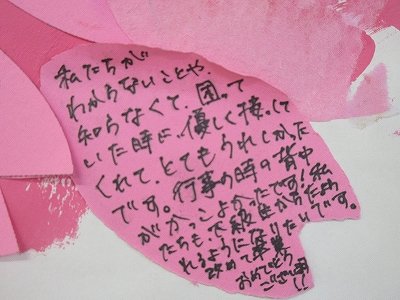 私たちが
わからないことや、
知らなくて、困って
いた時に、優しく接して
くれて、とてもうれしかった
です。行事の時の背中
がかっこよかったです!私
たちも、下級生からたよら
れるようになりたいです。
改めて卒業
おめでとう
ございます!!